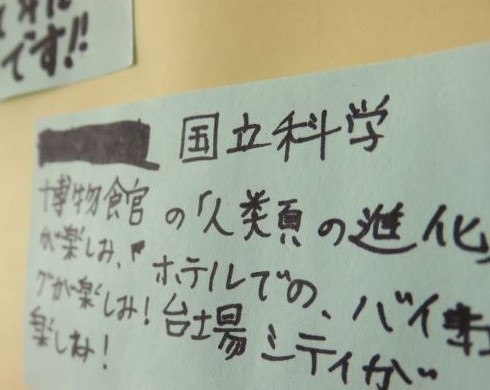 です!!
国立科学
博物館の「人類の進化」
が楽しみ、ホテルでの、バイキン
グが楽しみ!台場シティが
楽しみ!